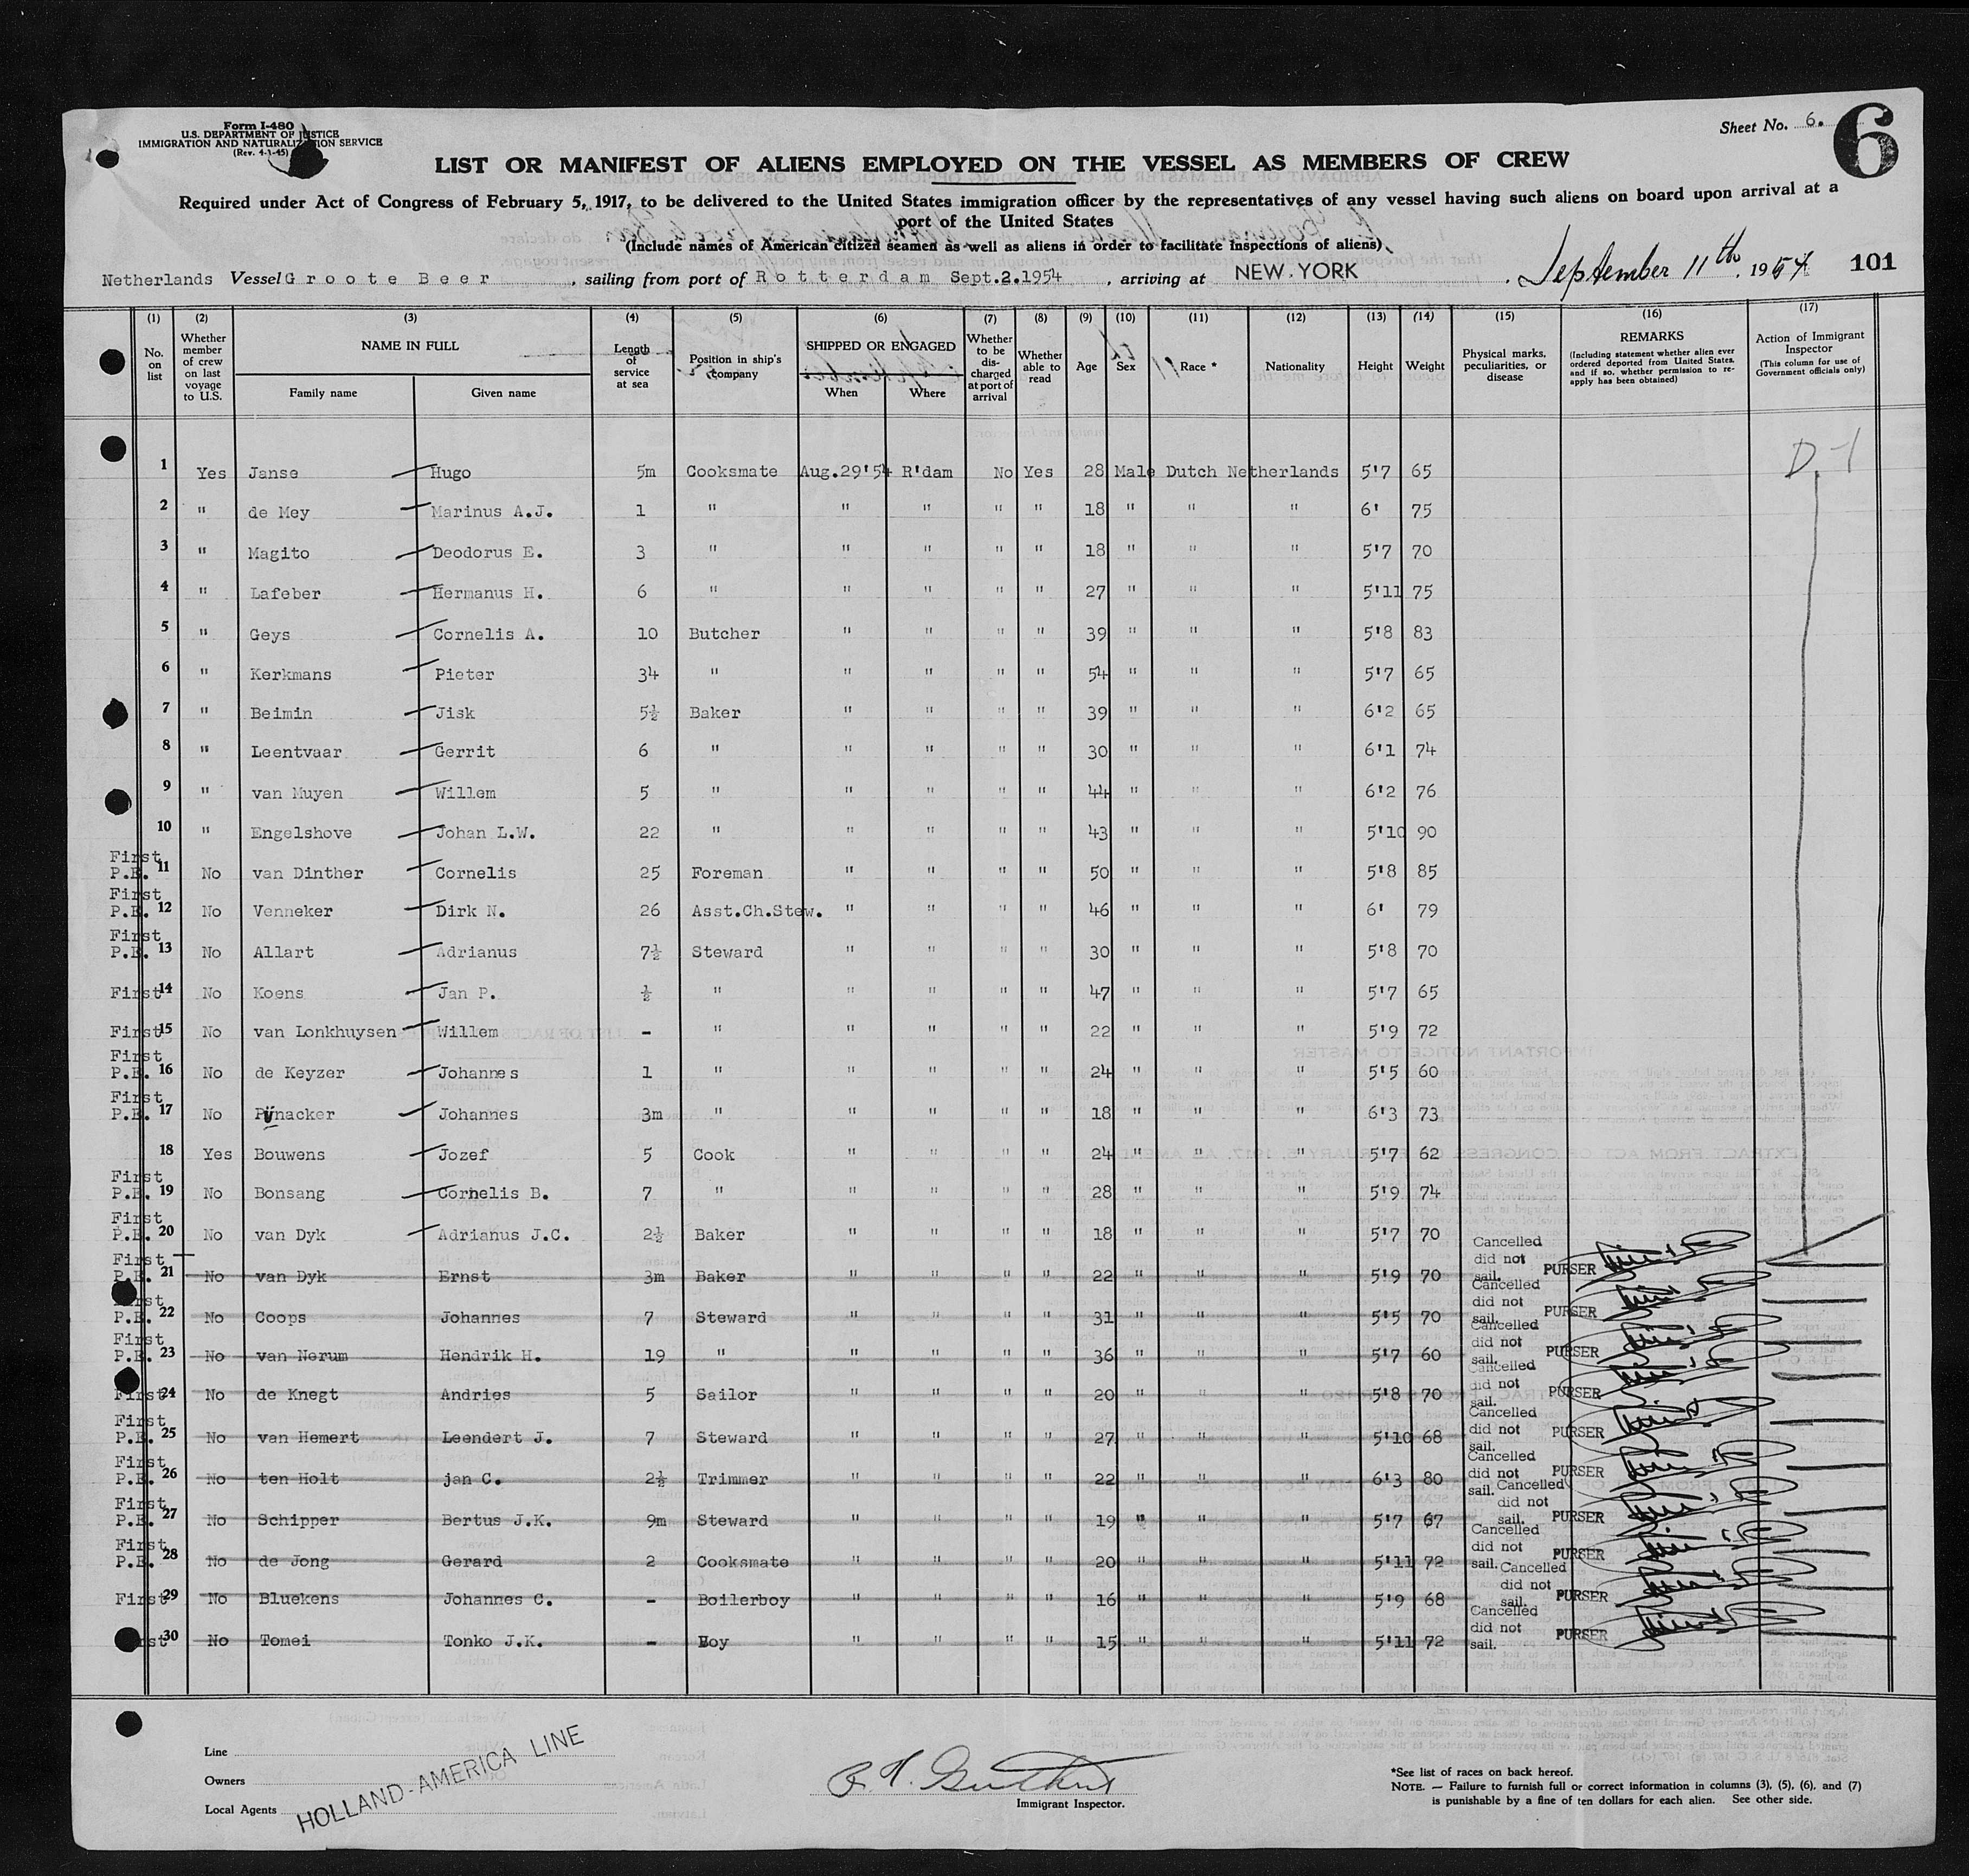 Form I-480
U.S. DEPARTMENT OF JUSTICE
IMMIGRATION AND NATURALIZATION SERVICE
(Rev. 4-1-45)
Sheet No. 6.
6
LIST OR MANIFEST OF ALIENS EMPLOYED ON THE VESSEL AS MEMBERS OF CREW
Required under Act of Congress of February 5, 1917, to be delivered to the United States immigration officer by the representatives of any vessel having such aliens on board upon arrival at a
port of the United States
(Include names of American citized seamen as well as aliens in order to facilitate inspections of aliens)
Netherlands Vessel Groote Beer, sailing from port of Rotterdam Sept.2.1954, arriving at NEW YORK. September 11th, 1954 101
(1) (2) (3) (4) (5) (6) (7) (8) (9) (10) (11) (12) (13) (14) (15) (16) (17)
No. on list
Whether member of crew on last voyage to U.S.
NAME IN FULL
Family name Given name
Length of service at sea
Position in ship's company
SHIPPED OR ENGAGED
When Where
Whether to be discharged at port of arrival
Whether able to read
Age
Sex
Race *
Nationality
Height
Weight
Physical marks, peculiarities, or disease
REMARKS
(Including statement whether alien ever ordered deported from United States, and if so, whether permission to reapply has been obtained)
Action of Immigrant Inspector
(This column for use of Government officials only)
D-1
1 Yes Janse Hugo 5m Cooksmate Aug.29'54 R'dam No Yes 28 Male Dutch Netherlands 5'7 65
2 " de Mey Marinus A.J. 1 " " " " " 18 " " " 6' 75
3 " Magito Deodorus E. 3 " " " " " 18 " " " 5'7 70
4 " Lafeber Hermanus H. 6 " " " " " 27 " " " 5'11 75
5 " Geys Cornelis A. 10 Butcher " " " " 39 " " " 5'8 83
6 " Kerkmans Pieter 34 " " " " " 54 " " " 5'7 65
7 " Beimin Jisk 5½ Baker " " " " 39 " " " 6'2 65
8 " Leentvaar Gerrit 6 " " " " " 30 " " " 6'1 74
9 " van Muyen Willem 5 " " " " " 44 " " " 6'2 76
10 " Engelshove Johan L.W. 22 " " " " " 43 " " " 5'10 90
First P.E. 11 No van Dinther Cornelis 25 Foreman " " " " 50 " " " 5'8 85
First P.E. 12 No Venneker Dirk N. 26 Asst.Ch.Stew. " " " " 46 " " " 6' 79
First P.E. 13 No Allart Adrianus 7½ Steward " " " " 30 " " " 5'8 70
First 14 No Koens Jan P. ½ " " " " " 47 " " " 5'7 65
First 15 No van Lonkhuysen Willem - " " " " " 22 " " " 5'9 72
First P.E. 16 No de Keyzer Johannes 1 " " " " " 24 " " " 5'5 60
First P.E. 17 No Pijnacker Johannes 3m " " " " " 18 " " " 6'3 73
18 Yes Bouwens Jozef 5 Cook " " " " 24 " " " 5'7 62
First P.E. 19 No Bonsang Cornelis B. 7 " " " " " 28 " " " 5'9 74
First P.E. 20 No van Dyk Adrianus J.C. 2½ Baker " " " " 18 " " " 5'7 70
First P.E. 21 No van Dyk Ernst 3m Baker " " " " 22 " " " 5'9 70 Cancelled did not sail. PURSER
First P.E. 22 No Coops Johannes 7 Steward " " " " 31 " " " 5'5 70 Cancelled did not sail. PURSER
First P.E. 23 No van Nerum Hendrik H. 19 " " " " " 36 " " " 5'7 60 Cancelled did not sail. PURSER
First 24 No de Knegt Andries 5 Sailor " " " " 20 " " " 5'8 70 Cancelled did not sail. PURSER
First P.E. 25 No van Hemert Leendert J. 7 Steward " " " " 27 " " " 5'10 68 Cancelled did not sail. PURSER
First P.E. 26 No ten Holt jan C. 2½ Trimmer " " " " 22 " " " 6'3 80 Cancelled did not sail. PURSER
First P.E. 27 No Schipper Bertus J.K. 9m Steward " " " " 19 " " " 5'7 67 Cancelled did not sail. PURSER
First P.E. 28 No de Jong Gerard 2 Cooksmate " " " " 20 " " " 5'11 72 Cancelled did not sail. PURSER
First 29 No Bluekens Johannes C. - Boilerboy " " " " 16 " " " 5'9 68 Cancelled did not sail. PURSER
First 30 No Tomei Tonko J.K. - Boy " " " " 15 " " " 5'11 72 Cancelled did not sail. PURSER
Line
Owners
Local Agents
HOLLAND-AMERICA LINE
Immigrant Inspector.
*See list of races on back hereof.
NOTE. — Failure to furnish full or correct information in columns (3), (5), (6), and (7)
is punishable by a fine of ten dollars for each alien. See other side.